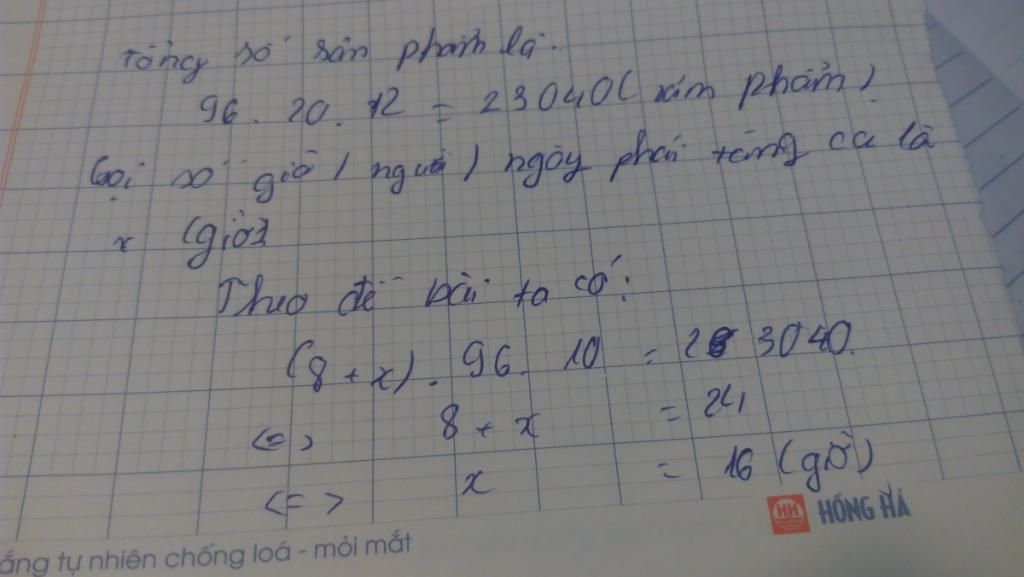 Tổng số sản phẩm là.
96. 20. 12 = 23040 ( sản phẩm )
Gọi số giờ 1 người 1 ngày phải tăng ca là
x (giờ)
Theo đề bài ta có:
(8 + x) . 96. 10 = 23040.
<=> 8 + x = 24
<=> x = 16 (giờ)
HH HỒNG HÀ
ắng tự nhiên chống loá - mỏi mắt